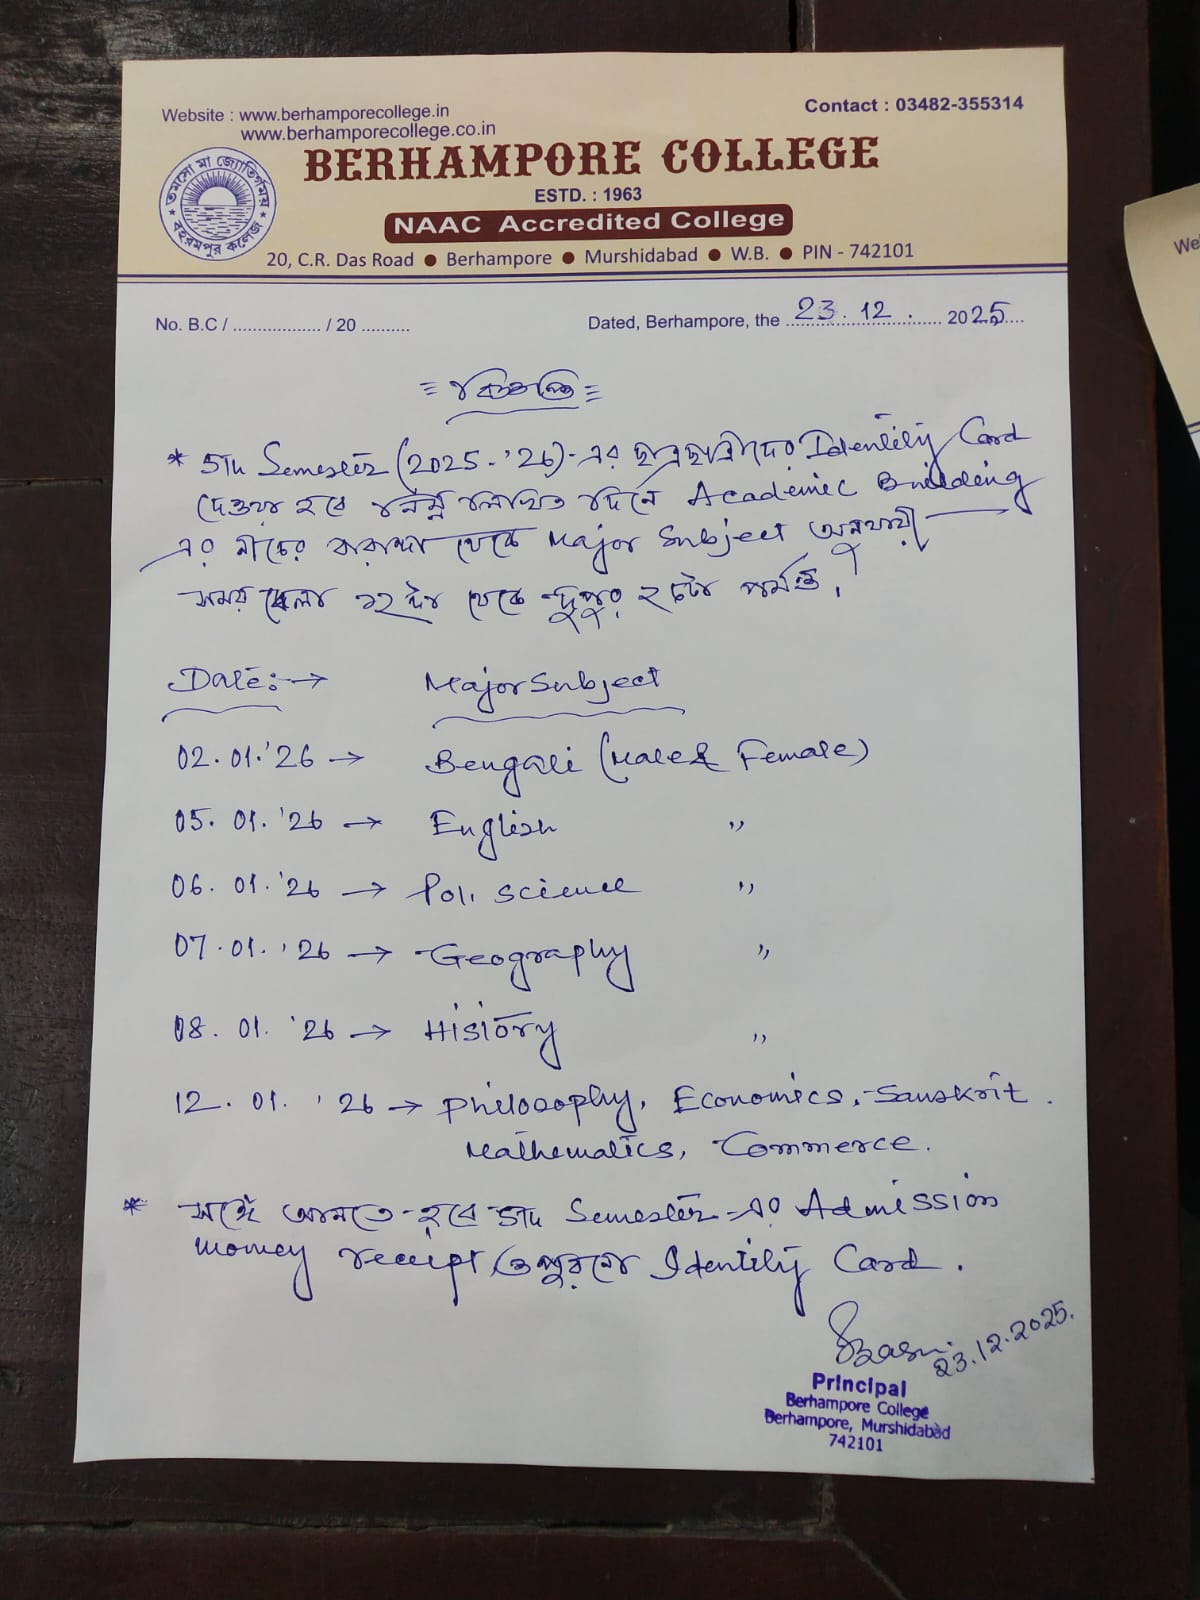 Website : www.berhamporecollege.in
www.berhamporecollege.co.in
Contact : 03482-355314
তমসো মা জ্যোতির্গময়
বহরমপুর কলেজ
BERHAMPORE COLLEGE
ESTD. : 1963
NAAC Accredited College
20, C.R. Das Road ● Berhampore ● Murshidabad ● W.B. ● PIN - 742101
No. B.C / .................. / 20 ..........
Dated, Berhampore, the 23.12. 2025
বিজ্ঞপ্তি
* 5th Semester (2025-'26)-এর ছাত্রছাত্রীদের Identity Card
দেওয়া হবে নিম্নলিখিত দিনে Academic Building
এর নীচের বারান্দা থেকে Major Subject অনুযায়ী
সময় বেলা ১২টা থেকে দুপুর ২টো পর্যন্ত।
Date:→ Major Subject
02.01.'26 → Bengali (Male & Female)
05.01.'26 → English "
06.01.'26 → Pol. Science "
07.01.'26 → Geography "
08.01.'26 → History "
12.01.'26 → Philosophy, Economics, Sanskrit.
Mathematics, Commerce.
* সঙ্গে আনতে হবে 5th Semester-এর Admission
money receipt ও পুরনো Identity Card.
23.12.2025.
Principal
Berhampore College
Berhampore, Murshidabad
742101